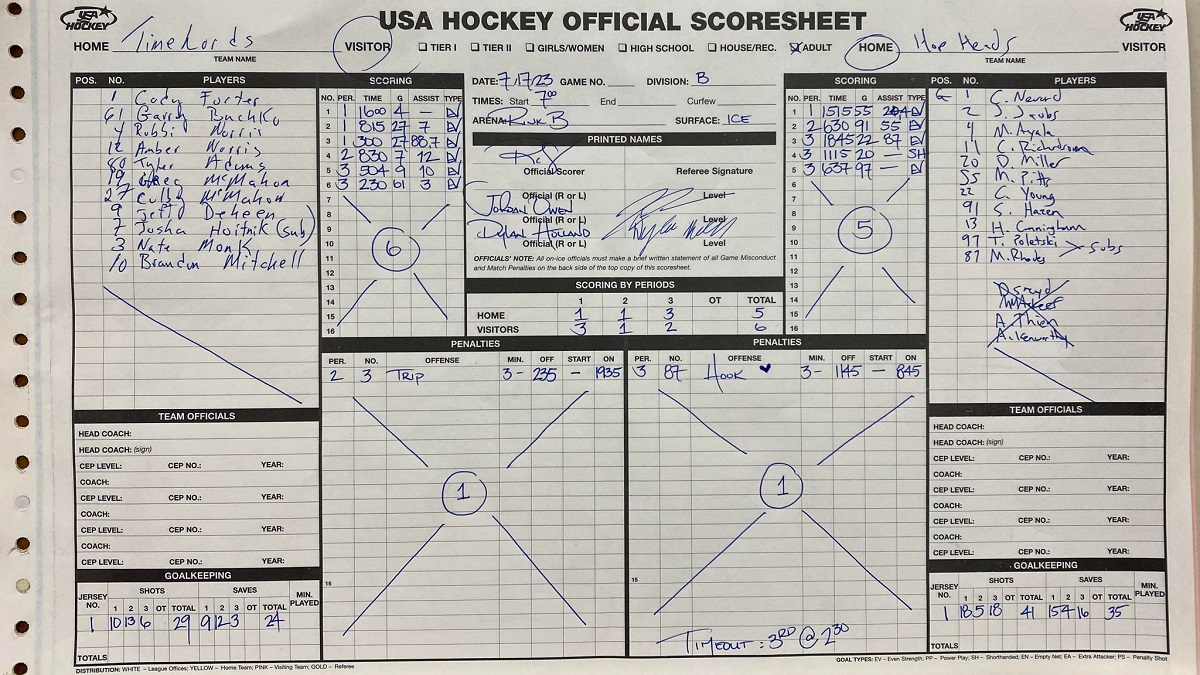 USA HOCKEY
USA HOCKEY OFFICIAL SCORESHEET
USA HOCKEY
HOME Time Lords VISITOR
TEAM NAME
TIER I TIER II GIRLS/WOMEN HIGH SCHOOL HOUSE/REC. ADULT
HOME Hop Heads VISITOR
TEAM NAME
POS. NO. PLAYERS
1 Cody Porter
61 Garrth Buchko
4 Robbi Norris
12 Amber Norris
80 Tyler Adams
19 Greg McMahon
27 Cully McMahon
9 Jeff Deheen
7 Josha Hoitnik (sub)
3 Nate Monk
10 Brandon Mitchell
SCORING
NO. PER. TIME G ASSIST TYPE
1 1 1600 4 — EV
2 1 815 27 7 EV
3 1 300 27 88,7 EV
4 2 830 7 12 EV
5 3 504 9 10 EV
6 3 230 61 3 EV
7
8
9
10
11
12
13
14
15
16
6
DATE: 7/17/23 GAME NO. DIVISION: B
TIMES: Start 7:00 End Curfew
ARENA: Rink B SURFACE: ICE
PRINTED NAMES
Official Scorer Referee Signature
Jordan Owen
Official (R or L) Level
Dylan Holland
Official (R or L) Level
Official (R or L) Level
OFFICIALS' NOTE: All on-ice officials must make a brief written statement of all Game Misconduct
and Match Penalties on the back side of the top copy of this scoresheet.
SCORING BY PERIODS
1 2 3 OT TOTAL
HOME 1 1 3 5
VISITORS 3 1 2 6
SCORING
NO. PER. TIME G ASSIST TYPE
1 1 1515 55 EV
2 2 630 91 55 EV
3 3 1845 22 87 EV
4 3 1115 20 — SH
5 3 637 97 — EV
6
7
8
9
10
11
12
13
14
15
16
5
POS. NO. PLAYERS
G 1 C. Nevard
2 S. Jacobs
4 M. Ayala
11 C. Richardson
20 D. Miller
55 M. Pitts
22 C. Young
91 S. Hazen
13 H. Cunningham
97 T. Poletski
87 M. Rhodes
subs
A. Thien
PENALTIES
PER. NO. OFFENSE MIN. OFF START ON
2 3 TRIP 3- 235 — 1935
1
PENALTIES
PER. NO. OFFENSE MIN. OFF START ON
3 87 HOOK 3- 1145 — 845
1
15
15
TIMEOUT: 3RD @ 2:30
TEAM OFFICIALS
HEAD COACH:
HEAD COACH: (sign)
CEP LEVEL: CEP NO.: YEAR:
COACH:
CEP LEVEL: CEP NO.: YEAR:
COACH:
CEP LEVEL: CEP NO.: YEAR:
COACH:
CEP LEVEL: CEP NO.: YEAR:
GOALKEEPING
JERSEY NO. SHOTS SAVES MIN. PLAYED
1 2 3 OT TOTAL 1 2 3 OT TOTAL
1 10 13 6 29 9 12 3 24
TOTALS
TEAM OFFICIALS
HEAD COACH:
HEAD COACH: (sign)
CEP LEVEL: CEP NO.: YEAR:
COACH:
CEP LEVEL: CEP NO.: YEAR:
COACH:
CEP LEVEL: CEP NO.: YEAR:
COACH:
CEP LEVEL: CEP NO.: YEAR:
GOALKEEPING
JERSEY NO. SHOTS SAVES MIN. PLAYED
1 2 3 OT TOTAL 1 2 3 OT TOTAL
1 18 5 18 41 15 4 16 35
TOTALS
DISTRIBUTION: WHITE – League Offices; YELLOW – Home Team; PINK – Visiting Team; GOLD – Referee
GOAL TYPES: EV – Even Strength; PP – Power Play; SH – Shorthanded; EN – Empty Net; EA – Extra Attacker; PS – Penalty Shot